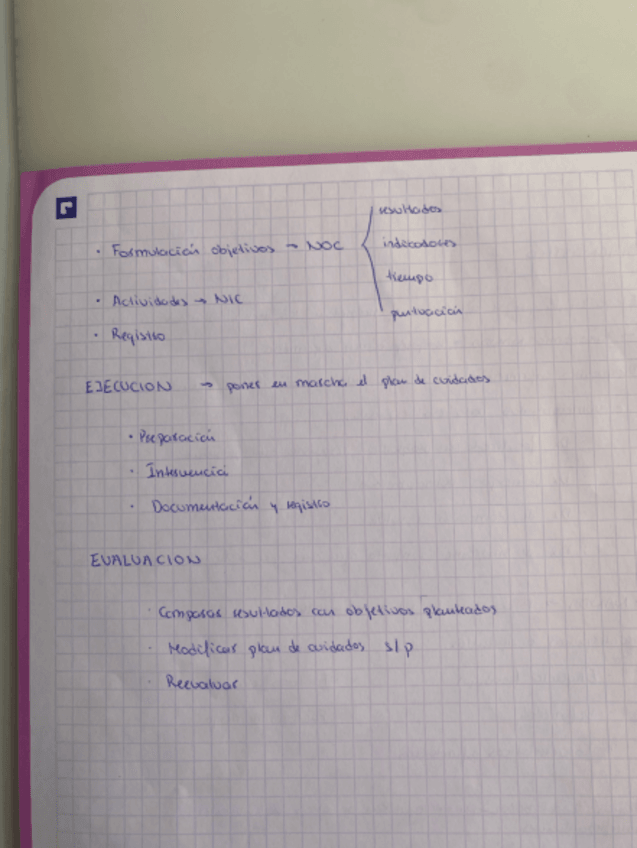 · Formulación objetivos → NOC
resultados
indicadores
tiempo
puntuación
· Actividades → NIC
· Registro
EJECUCION → poner en marcha el plan de cuidados
· Preparación
· Intervención
· Documentación y registro
EVALUACION
· Comparar resultados con objetivos planteados
· Modificar plan de cuidados s/p
· Reevaluar